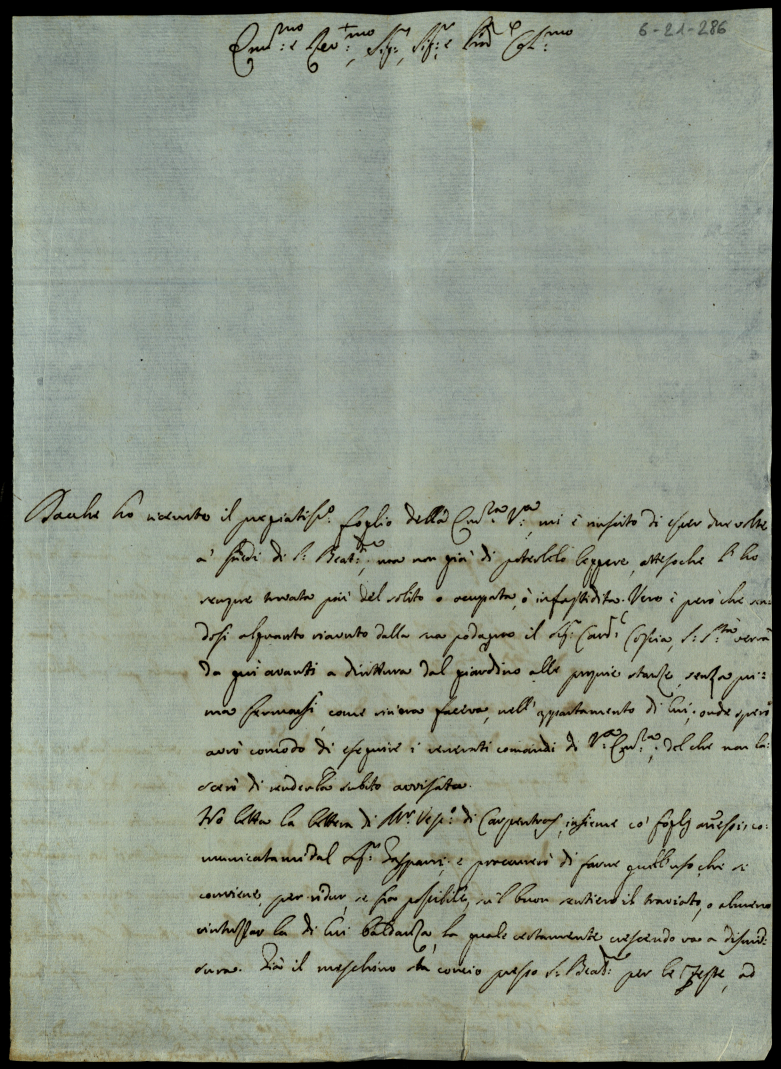 6-21-286
Em:mo e Rev:mo Sig:, Sig:e Pron Col:mo
Dacche hò ricevuto il pregiatis:o foglio della Em:za V:a mi è riuscito di esser due volte
a' piedi di S: Beat:ne, ma non già di poterlelo leggere, attesoche l'ho
sempre trovata più del solito o occupata, ò infastidita. Vero è però che ren-
dosi alquanto riavuto dalla sua podagra il Sig: Card:l Coscia, S: S:tà verrà
da qui avanti a dirittura dal giardino alle proprie stanze, senza pri:
ma fermarsi, come sin'ora faceva, nell'appartamento di lui; onde spero
avrò comodo di eseguire i venerati comandi di V:a Em:za; del che non la:
scerò di renderla subito avvisata.
Hò letta la lettera di Mr. Vesc:o di Carpentras, insieme co' foglj annessi, co:
municatami dal Sig: Gasparri; e procurerò di farne quell'uso che si
conviene, per ridur, se fia possibile, sù'l buon sentiero il traviato, o almeno
rintuzzar la di lui baldanza, la quale certamente crescendo va a dismi:
sura. Già il meschino stà concio presso S: Beat:ne per le teste, ad